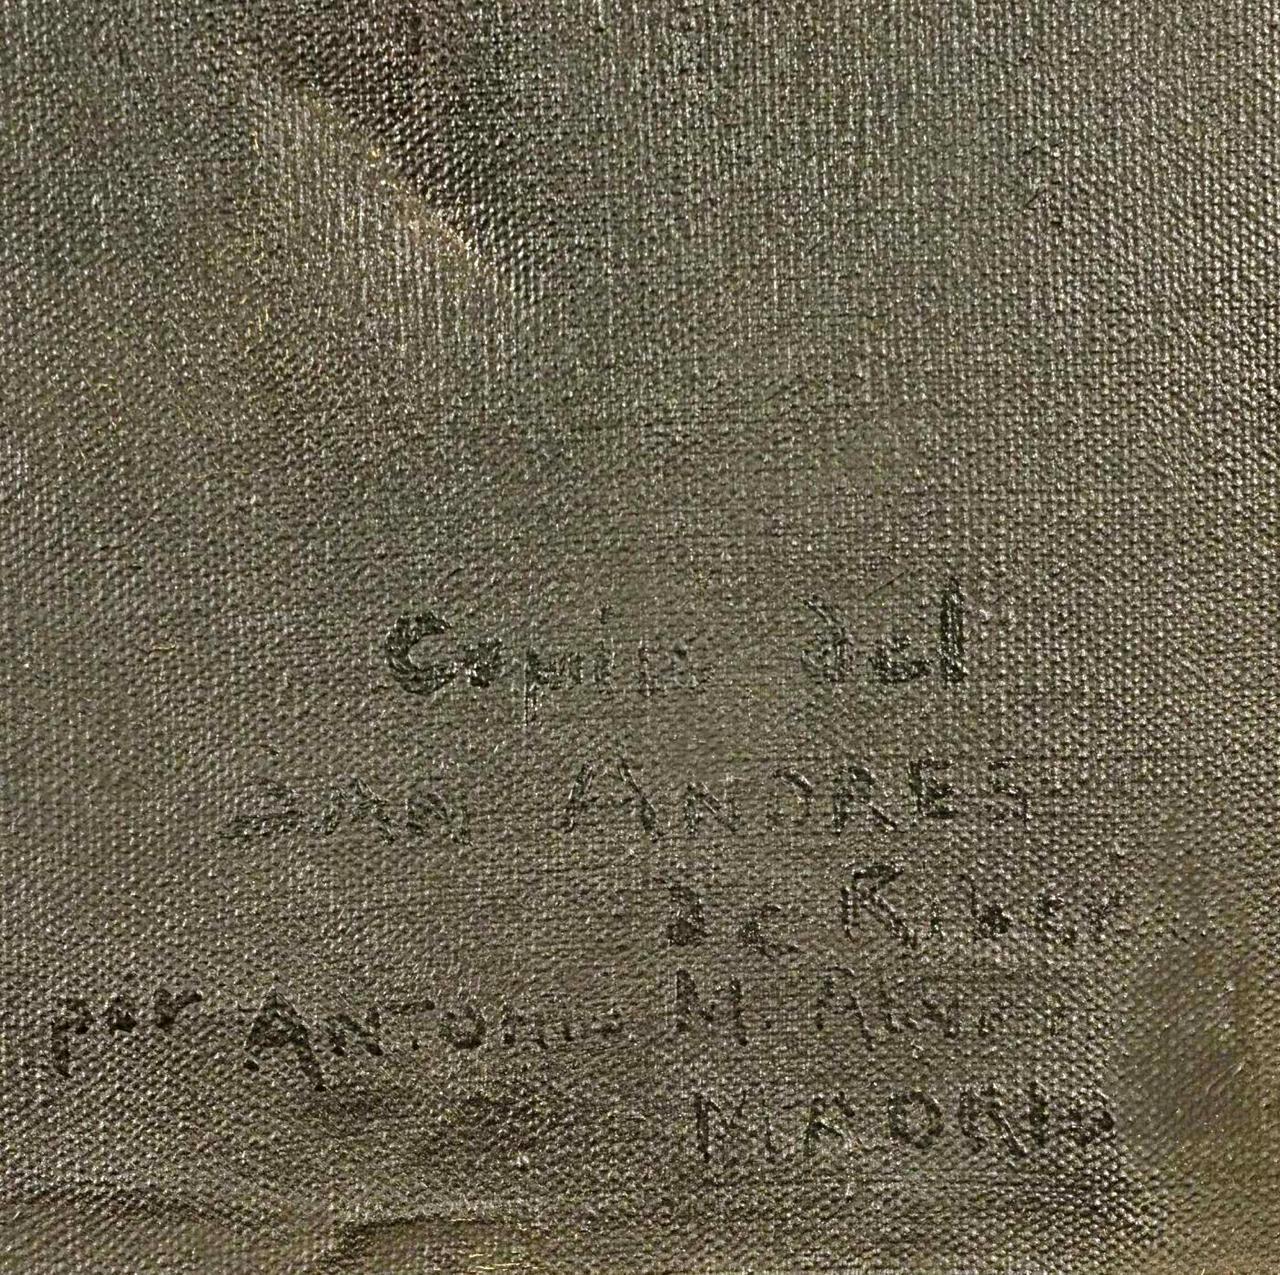 Copia del
SAN ANDRES
de Riber
por ANTONIO M.
MADRID